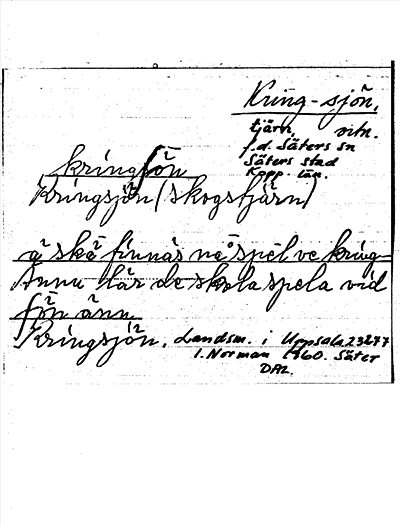 Kring-sjön,
tjärn, ntn.
f.d. Säters sn
Säters stad
Kopp. län.
kringʃön
Kringsjön (skogstjärn)
ä skä finnas ne spel ve kring-
Ännu lär de skola spela vid
ʃön änn
Kringsjön. Landsm. i Uppsala 23277
I. Norman 1960. Säter
DAL.